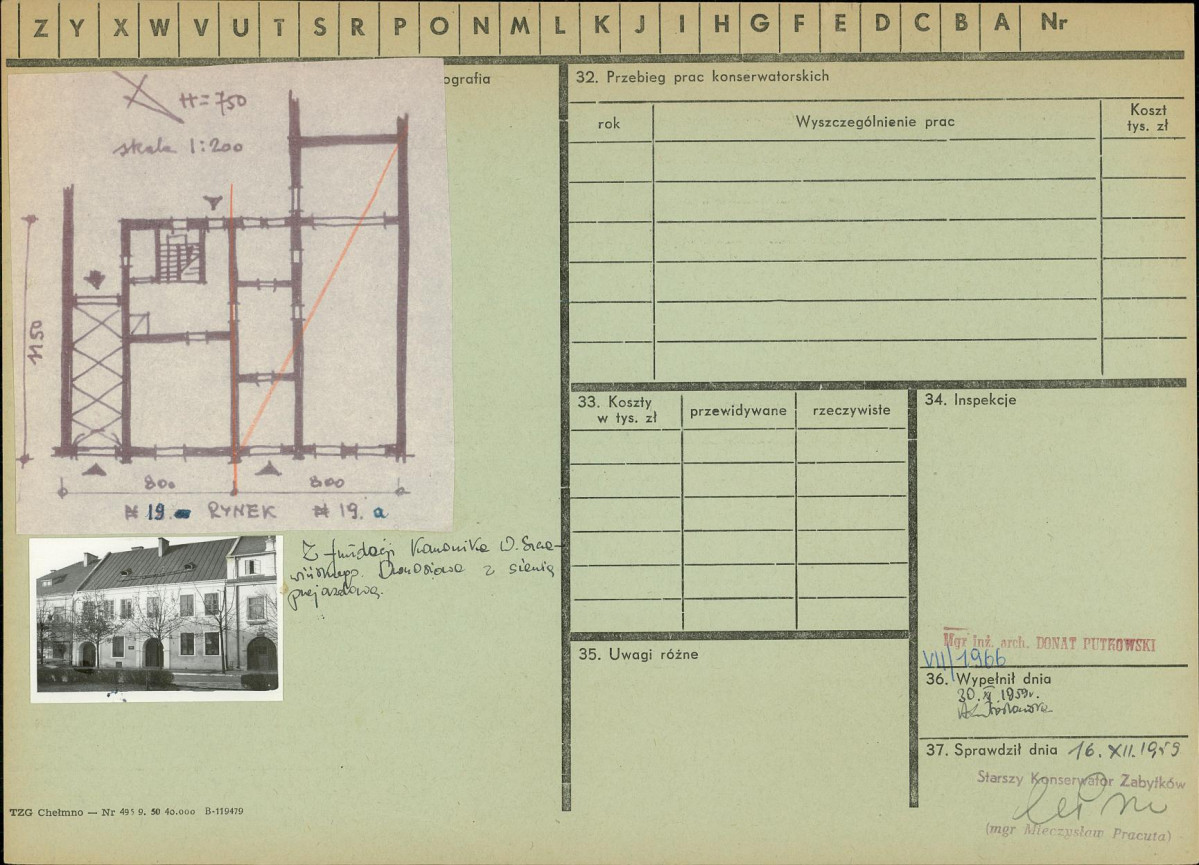 Z Y X W V U T S R P O N M L K J I H G F E D C B A Nr
ografia
H = 750
skala 1:200
1150
800 800
№ 19 RYNEK № 19.a
Z fundacji Kanonika W.
Dwuosiowa z sienią
przejazdową.
TZG Chełmno — Nr 495 9. 50 40.000 B-119479
32. Przebieg prac konserwatorskich
rok Wyszczególnienie prac Koszt
tys. zł
33. Koszty
w tys. zł przewidywane rzeczywiste
34. Inspekcje
Mgr Inż. arch. DONAT PUTKOWSKI
VII/1966
35. Uwagi różne
36. Wypełnił dnia
30. XI 1959r.
37. Sprawdził dnia 16. XII. 1959
Starszy Konserwator Zabytków
(mgr Mieczysław Pracuta)